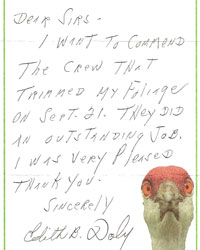 Dear Sirs -
I want to commend
the crew that
trimmed my foliage
on Sept. 21. They did
an outstanding job.
I was very pleased
Thank you.
Sincerely
Edith B. Daly